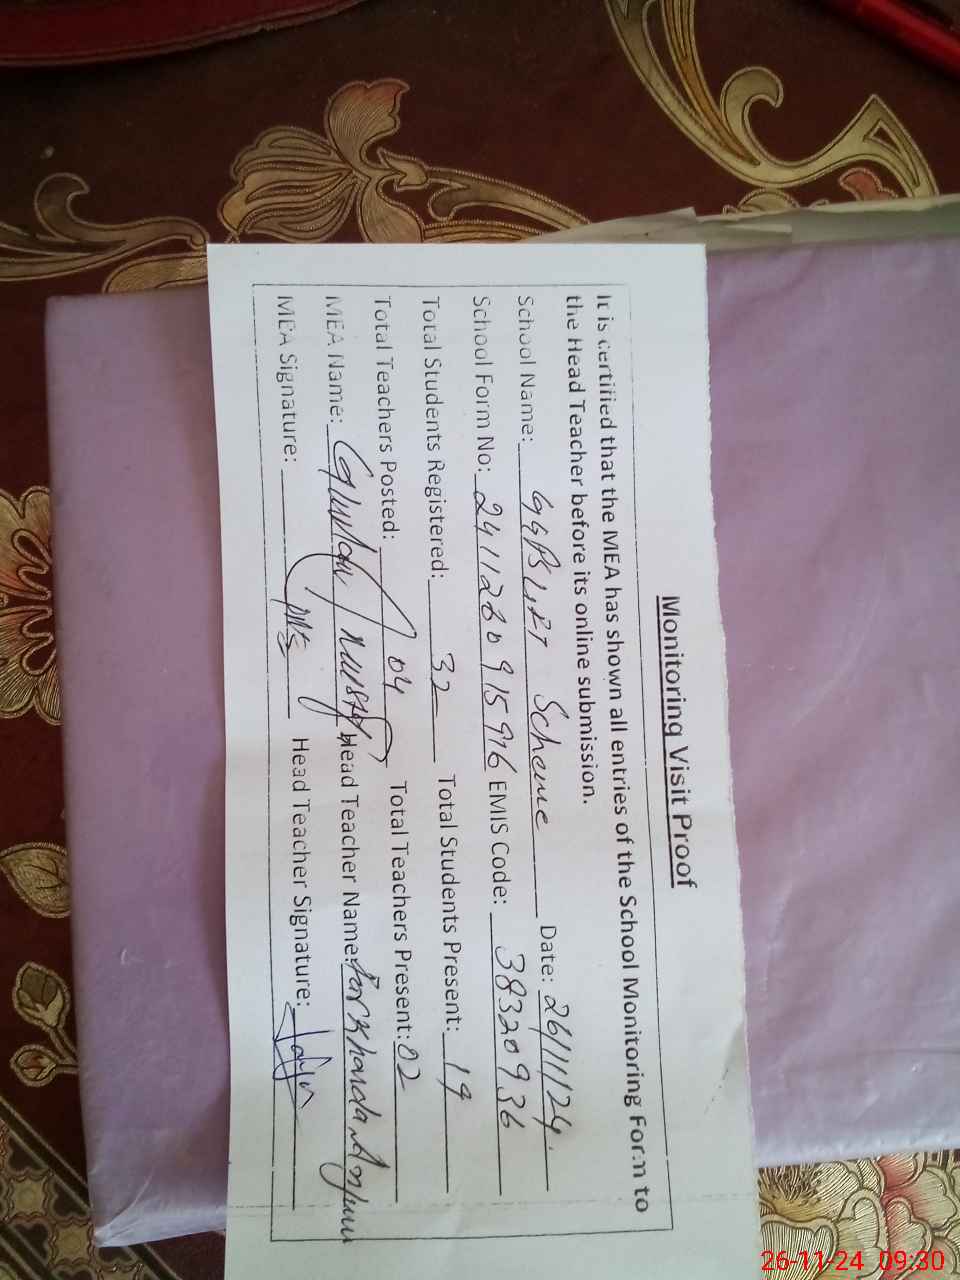 Monitoring Visit Proof
It is certified that the MEA has shown all entries of the School Monitoring Form to
the Head Teacher before its online submission.
School Name: GGPS Lift Scheme Date: 26/11/24
School Form No: 2411260915916 EMIS Code: 38320936
Total Students Registered: 32 Total Students Present: 19
Total Teachers Posted: 04 Total Teachers Present: 02
MEA Name: Head Teacher Name: Farkhanda Anjum
MEA Signature: Head Teacher Signature:
26-11-24 09:30